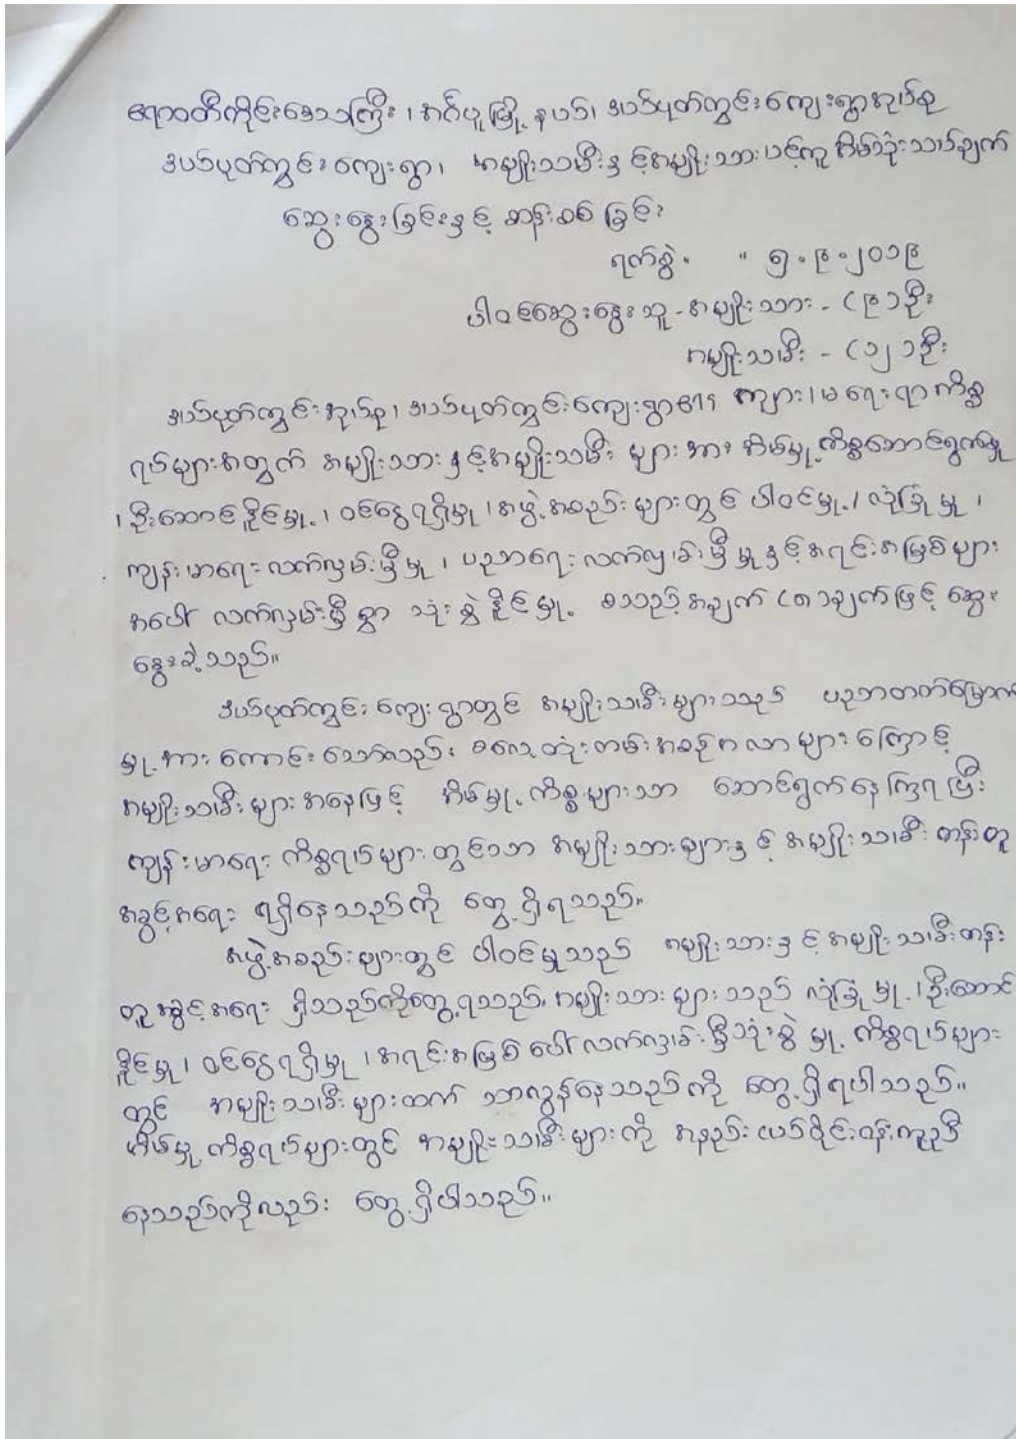 ဧရာဝတီတိုင်းဒေသကြီး၊ အင်္ဂပူမြို့နယ်၊ ဒယ်ပုတ်ကွင်းကျေးရွာအုပ်စု
ဒယ်ပုတ်ကွင်းကျေးရွာ၊ အမျိုးသမီးနှင့်အမျိုးသား သုံးသပ်ချက်
ဆွေးနွေးခြင်းနှင့် ဆန်းစစ်ခြင်း
ရက်စွဲ။ ။ ၅.၉.၂၀၁၉
ပါဝင်ဆွေးနွေးသူ - အမျိုးသား - (၉)ဦး
အမျိုးသမီး - (၁၂)ဦး
ဒယ်ပုတ်ကွင်းအုပ်စု၊ ဒယ်ပုတ်ကွင်းကျေးရွာ၏ ကျား၊မ ရေးရာကိစ္စ
ရပ်များအတွက် အမျိုးသားနှင့်အမျိုးသမီး များအား အိမ်မှု့ကိစ္စဆောင်ရွက်မှု
၊ ဦးဆောင်နိုင်မှု့၊ ဝင်ငွေရရှိမှု ၊ အဖွဲ့အစည်းများတွင် ပါဝင်မှု့၊ လုံခြုံမှု ၊
ကျန်းမာရေး လက်လှမ်းမှီမှု ၊ ပညာရေး လက်လှမ်းမှီမှုနှင့်အရင်းအမြစ်များ
အပေါ် လက်လှမ်းမှီစွာ သုံးစွဲနိုင်မှု့ စသည့်အချက် (၈)ချက်ဖြင့် ဆွေး
နွေးခဲ့သည်။
ဒယ်ပုတ်ကွင်းကျေးရွာတွင် အမျိုးသမီးများသည် ပညာတတ်မြောက်
မှု့အား ကောင်းသော်လည်း ဓလေ့ထုံးတမ်းအစဉ်အလာများကြောင့်
အမျိုးသမီးများအနေဖြင့် အိမ်မှု့ကိစ္စများသာ ဆောင်ရွက်နေကြရပြီး
ကျန်းမာရေး ကိစ္စရပ်များတွင်သာ အမျိုးသားများနှင့် အမျိုးသမီး တန်းတူ
အခွင့်အရေး ရရှိနေသည်ကို တွေ့ရှိရသည်။
အဖွဲ့အစည်းများတွင် ပါဝင်မှုသည် အမျိုးသားနှင့်အမျိုးသမီးတန်း
တူအခွင့်အရေး ရှိသည်ကိုတွေ့ရသည်၊ အမျိုးသားများသည် လုံခြုံမှု့၊ဦးဆောင်
နိုင်မှု၊ ဝင်ငွေရရှိမှု ၊ အရင်းအမြစ်ပေါ်လက်လှမ်းမှီသုံးစွဲမှု့ ကိစ္စရပ်များ
တွင် အမျိုးသမီးများထက် သာလွန်နေသည်ကို တွေ့ရှိရပါသည်။
အိမ်မှု့ကိစ္စရပ်များတွင် အမျိုးသမီးများကို အနည်းငယ်ဝိုင်းဝန်းကူညီ
နေသည်ကိုလည်း တွေ့ရှိပါသည်။